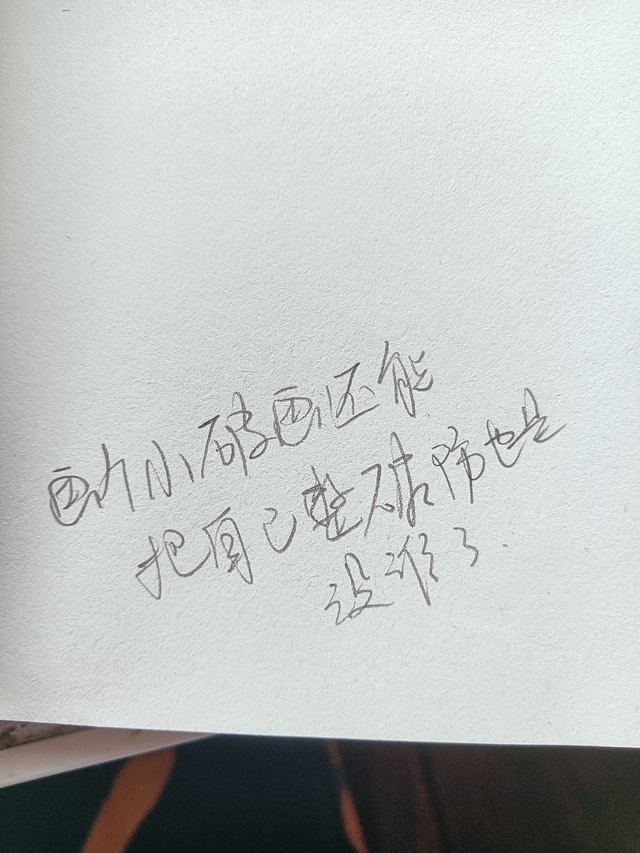 画个小破画还能
把自己整破防也是
没谁了.